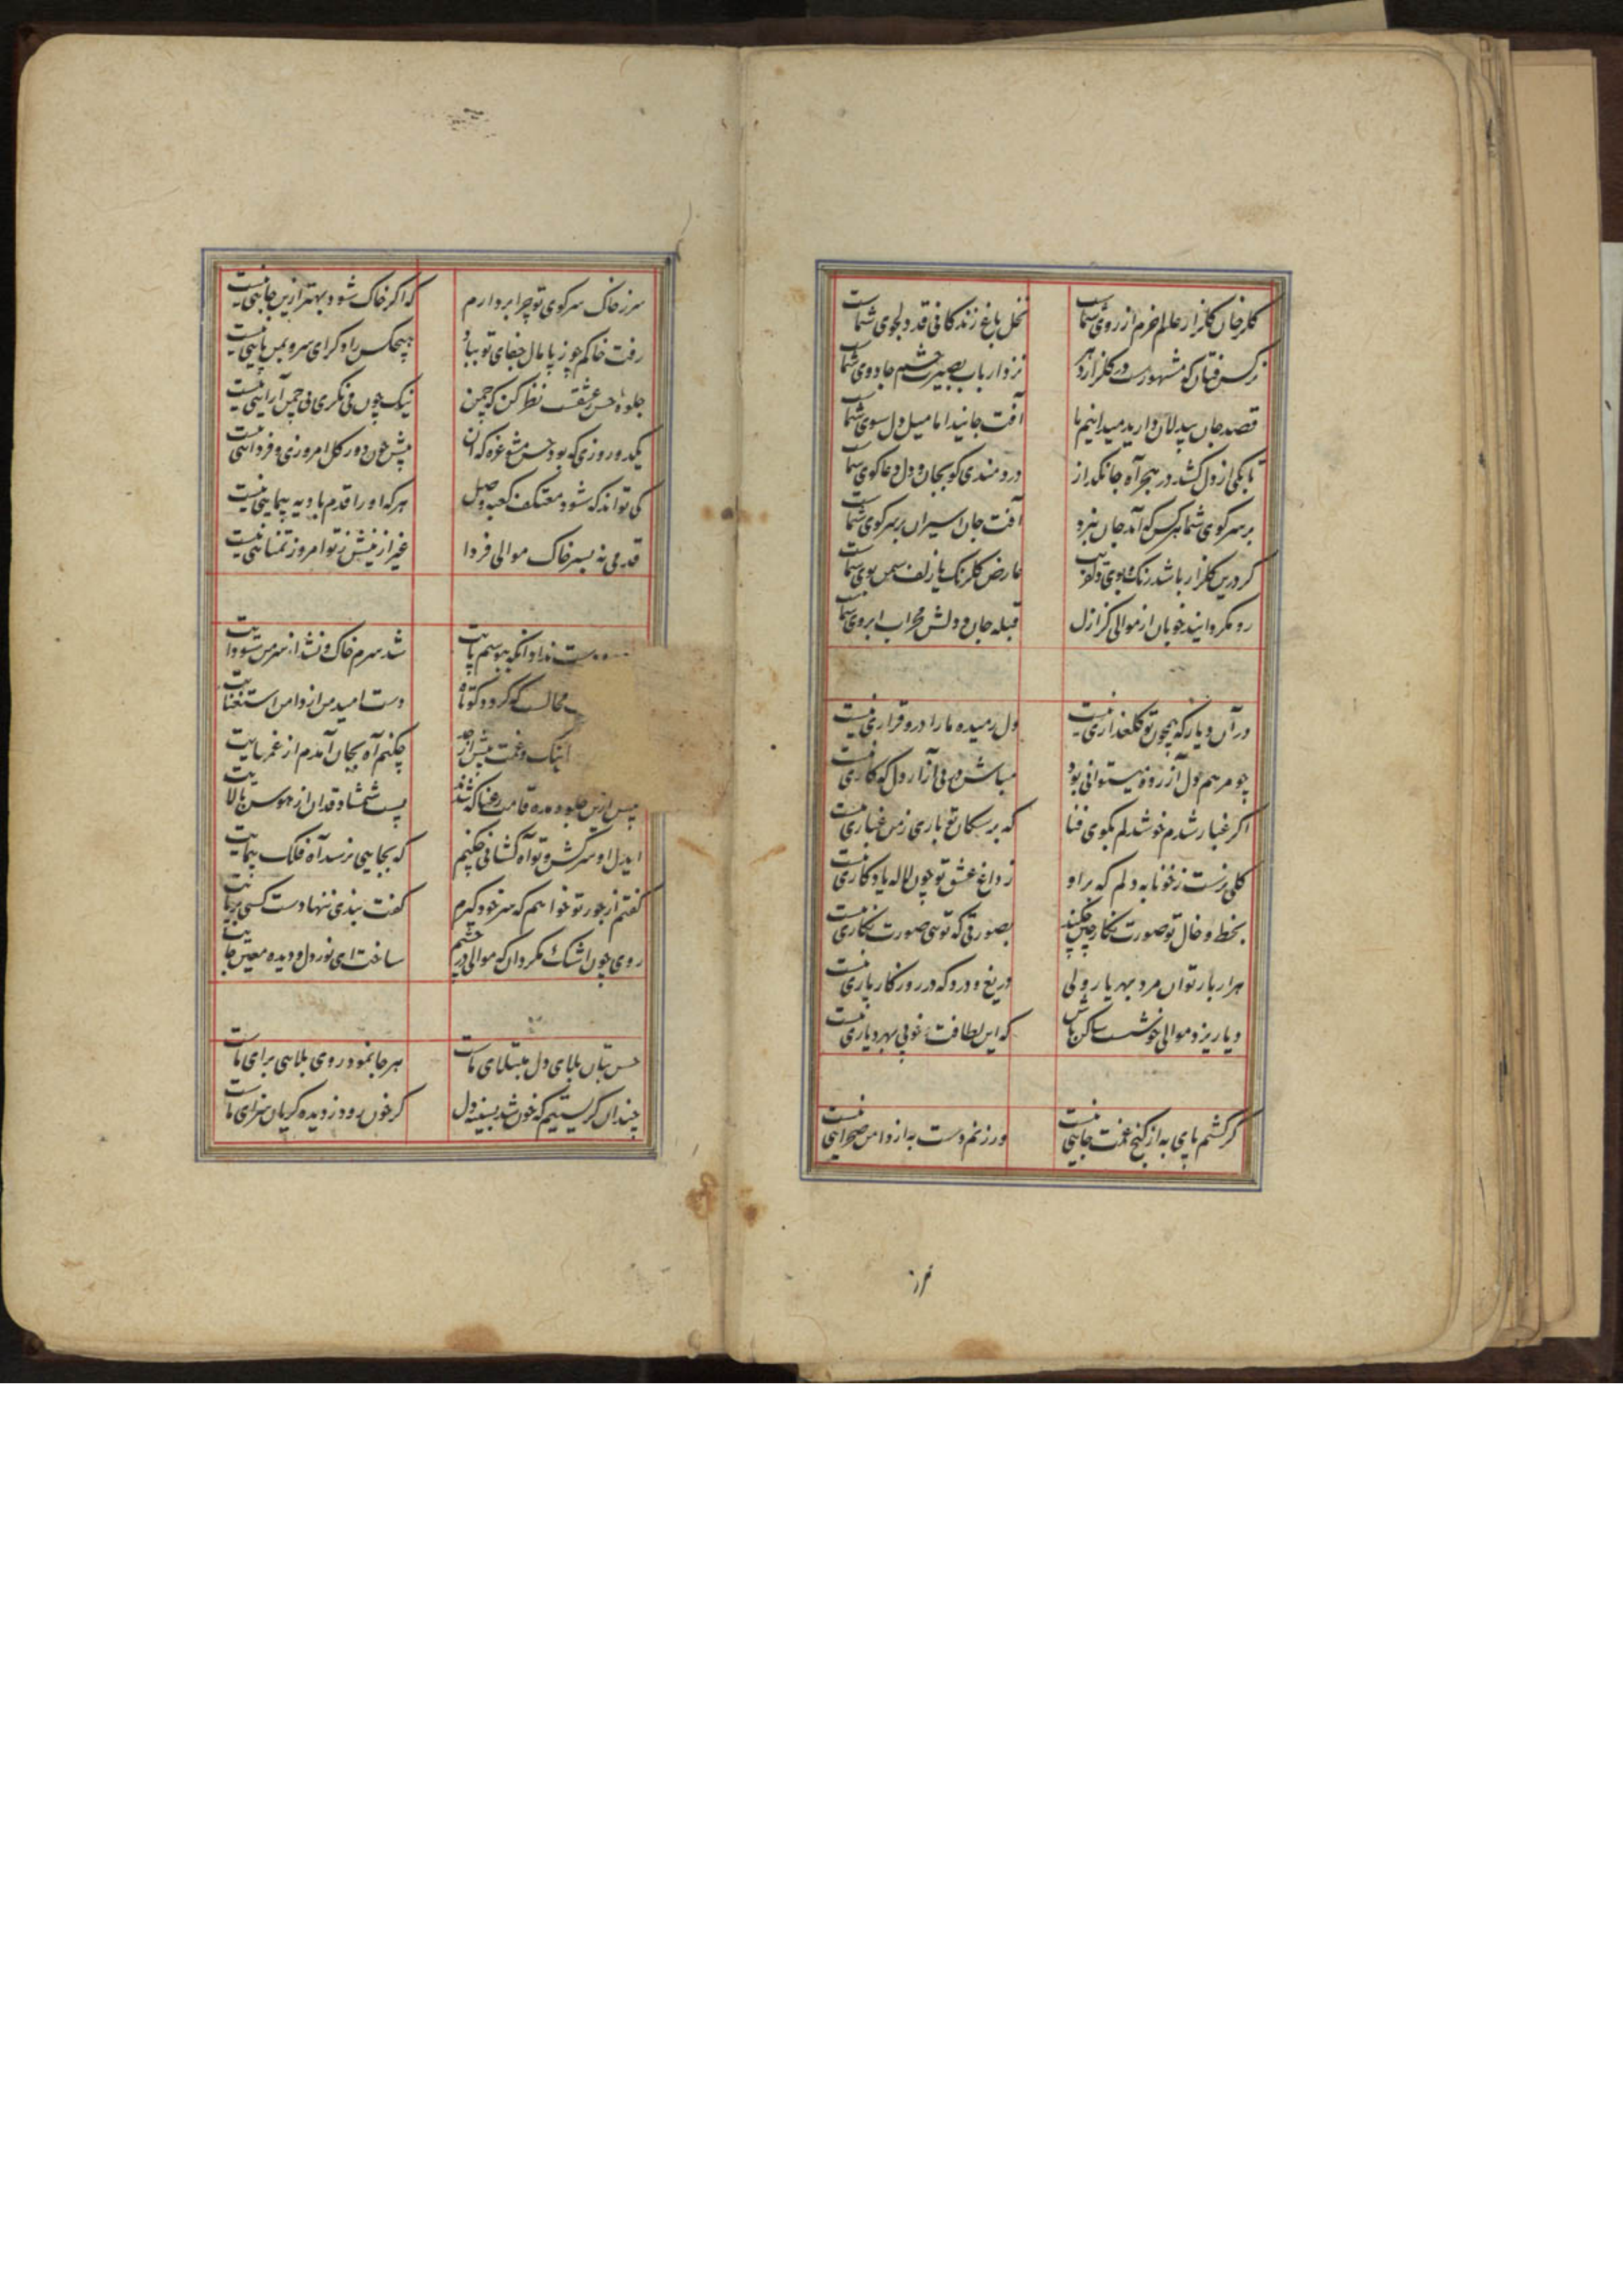 گلرخان گلزار عالم خرم از روی شماست نخل باغ زندگانی قد دلجوی شماست
نرگس فتان که مشهورست در گلزار دهر نزد ارباب بصیرت چشم جادوی شماست
قصد جان بیدلان دارید میدانیم ما آفت جانید اما میل دل سوی شماست
تا بکی از دل کشد در هجر آه جانگداز دردمندی کو بجان و دل دعاگوی شماست
بر سر کوی شما هر کس که آمد جان نبرد آفت جان اسیران بر سر کوی شماست
گر درین گلزار باشد رنگ و بوی دلفریب عارض گلرنگ با زلف سمن بوی شماست
رو مگردانید خوبان از موالی کز ازل قبله جان و دلش محراب ابروی شماست
در آن دیار که همچون تو گلعذاری نیست دل رمیده ما را درو قراری نیست
چو مرهم دل آزرده میتوانی بود مباش در پی آزار دل که کاری نیست
اگر غبار شدم خوشدلم بکوی فنا که بر سگان تو باری ز من غباری نیست
گلی نرست ز خونابه دلم که برو ز داغ عشق تو چون لاله یادگاری نیست
بخط و خال تو صورت نگار چین چکند بصورتی که تویی صورت نگاری نیست
هزار بار توان مرد بهر یار ولی دریغ و درد که در روزگار یاری نیست
دیار یزد موالی خوشست ساکن باش که این لطافت و خوبی بهر دیاری نیست
گر کشم پای به از کنج غمت جایی نیست ور زنم دست به از دامن صحرایی نیست
سر ز خاک سر کوی تو چرا بردارم که اگر خاک شود بهتر ازین جایی نیست
رفت خاکم چو ز پامال جفای تو بباد هیچکس را دگر ای سرو بمن پایی نیست
جلوه حسن ز عشقست نظر کن که چمن نیک چون می نگری بی چمن آرایی نیست
یکدو روزی که بود حسن مشو غره که آن پیش چون دور گل امروزی و فردایی نیست
کی تواند که شود معتکف کعبه وصل هر که او را قدم بادیه پیمایی نیست
قدمی نه بسر خاک موالی فردا غیر ازینش ز تو امروز تمنایی نیست
دست نداد آنکه ببوسم پایت شد سرم خاک و نشد از سر من سودایت
محالست که گردد کوتاه دست امید من از دامن استغنایت
اینک و غمت بیش از حد چکنم آه بجان آمدم از غمهایت
پیش ازین جلوه مده قامت رعنا که شدند پست شمشاد قدان از هوس بالایت
ای دل او سرکش و تو آه کشانی چکنم که بجایی نرسد آه فلک پیمایت
گفتم از جور تو خواهم که سر خود گیرم گفت بندی ننهادست کسی بر پایت
روی چون اشک مگردان که موالی در چشم ساخت ای نور دل و دیده معین جایت
حسن بتان بلای دل مبتلای ماست هر جا نمود روی بلایی برای ماست
چندان گریستیم که خون شد بسینه دل گر خون رود ز دیده گریان سزای ماست